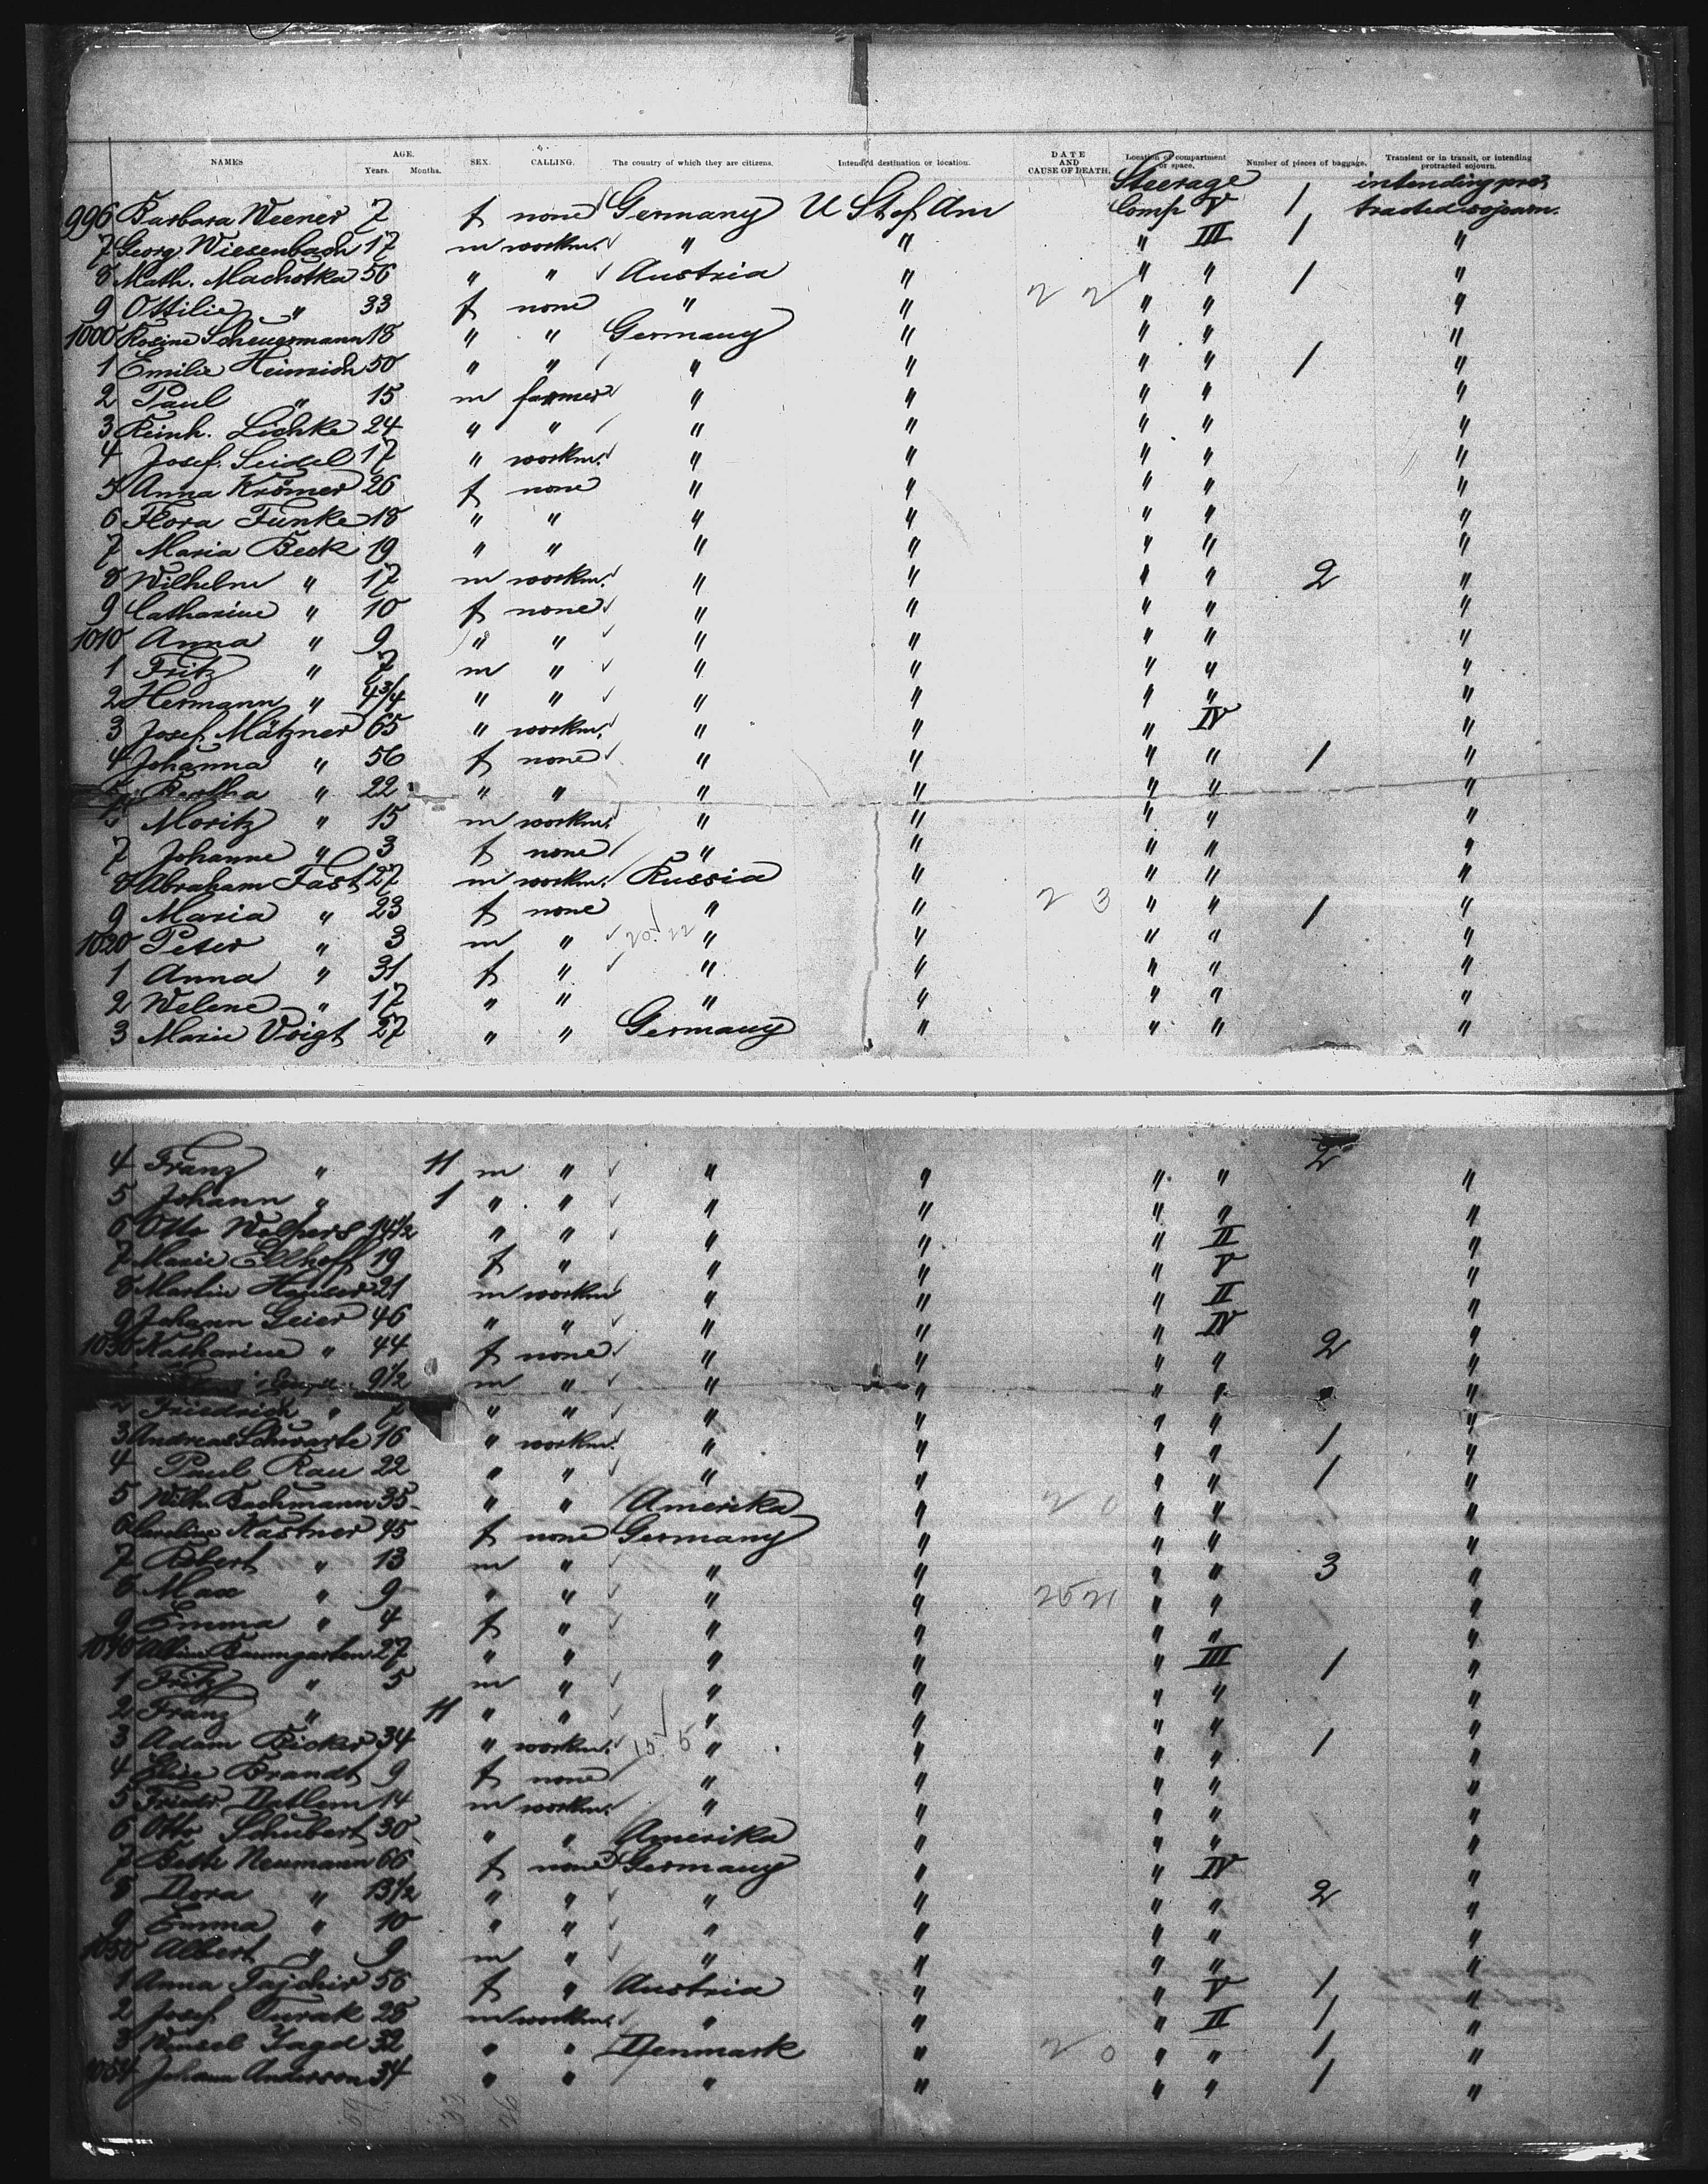 NAMES. AGE. Years. Months. SEX. CALLING. The country of which they are citizens. Intended destination or location. DATE AND CAUSE OF DEATH. Location of compartment or space. Number of pieces of baggage. Transient or in transit, or intending protracted sojourn.
996 Barbara Weener 7 f none Germany U St of Am Steerage Comp V 1 intending protracted sojourn.
7 Georg Wiesenbach 17 m workm. " " " III 1 "
8 Math. Machotka 56 " " Austria " " " 1 "
9 Ottilie " 33 f none " " 2 2 " " "
1000 Rosine Scheuermann 18 " " Germany " " " "
1 Emilie Heinrich 50 " " " " " " 1 "
2 Paul " 15 m farmer " " " " "
3 Reinh. Lichke 24 " " " " " " "
4 Josef Seidel 17 " workm. " " " " "
5 Anna Krömer 26 f none " " " " "
6 Flora Funke 18 " " " " " " "
7 Maria Beck 19 " " " " " " "
8 Wilhelm " 17 m workm. " " " " 2 "
9 Catharine " 10 f none " " " " "
1010 Anna " 9 " " " " " " "
1 Fritz " 7 m " " " " " "
2 Hermann " 4 3/4 " " " " " " "
3 Josef Mätzner 65 " workm. " " " IV "
4 Johanna " 56 f none " " " " 1 "
5 Bertha " 22 " " " " " " "
Moritz " 15 m workm. " " " " "
7 Johanne " 3 f none " " " " "
8 Abraham Fast 27 m workm. Russia " " " "
9 Maria " 23 f none " " 2 3 " " 1 "
1020 Peter " 3 m " " " " " "
1 Anna " 31 f " " " " " "
2 Welene " 17 " " " " " " "
3 Marie Voigt 27 " " Germany " " " "
4 Franz " 11 m " " " " " 2 "
5 Johann " 1 " " " " " " "
6 Otto Wolpers 14 1/2 " " " " " II "
7 Marie Ellhoff 19 f " " " " V "
8 Martin Hauser 21 m workm " " " II "
9 Johann Geier 46 " " " " " IV "
1030 Katharine " 44 f none " " " " 2 "
9 1/2 m " " " " " "
2 Friedrich " 7 " " " " " " "
3 Andreas Schwarte 16 " workm. " " " " 1 "
4 Paul Rau 22 " " " " " " 1 "
5 Wilh. Bachmann 35 " " Amerika " 2 0 " " "
6 Caroline Kastner 45 f none Germany " " " "
7 Robert " 13 m " " " " " 3 "
8 Max " 9 " " " " " " "
9 Emma " 4 f " " " " " "
1040 Baumgarten 27 " " " " " III 1 "
1 Fritz " 5 m " " " " " "
2 Franz " 11 " " " " " " "
3 Adam Bicker 34 " workm. " " " " 1 "
4 Elise Brandt 9 f none " " " " "
5 Detlem 14 m workm. " " " " "
6 Otto Schubert 30 " " Amerika " " " "
7 Beth Neumann 66 f none Germany " " IV "
8 Dora " 13 1/2 " " " " " " 2 "
9 Emma " 10 " " " " " " "
1050 Albert " 9 m " " " " " "
1 Anna 56 f " Austria " " V 1 "
2 Josef Turak 28 m workm. " " " II 1 "
3 Wensel Jagd 32 " " Denmark " 2 0 " " 1 "
1054 Johann Anderson 34 " " " " " " 1 "